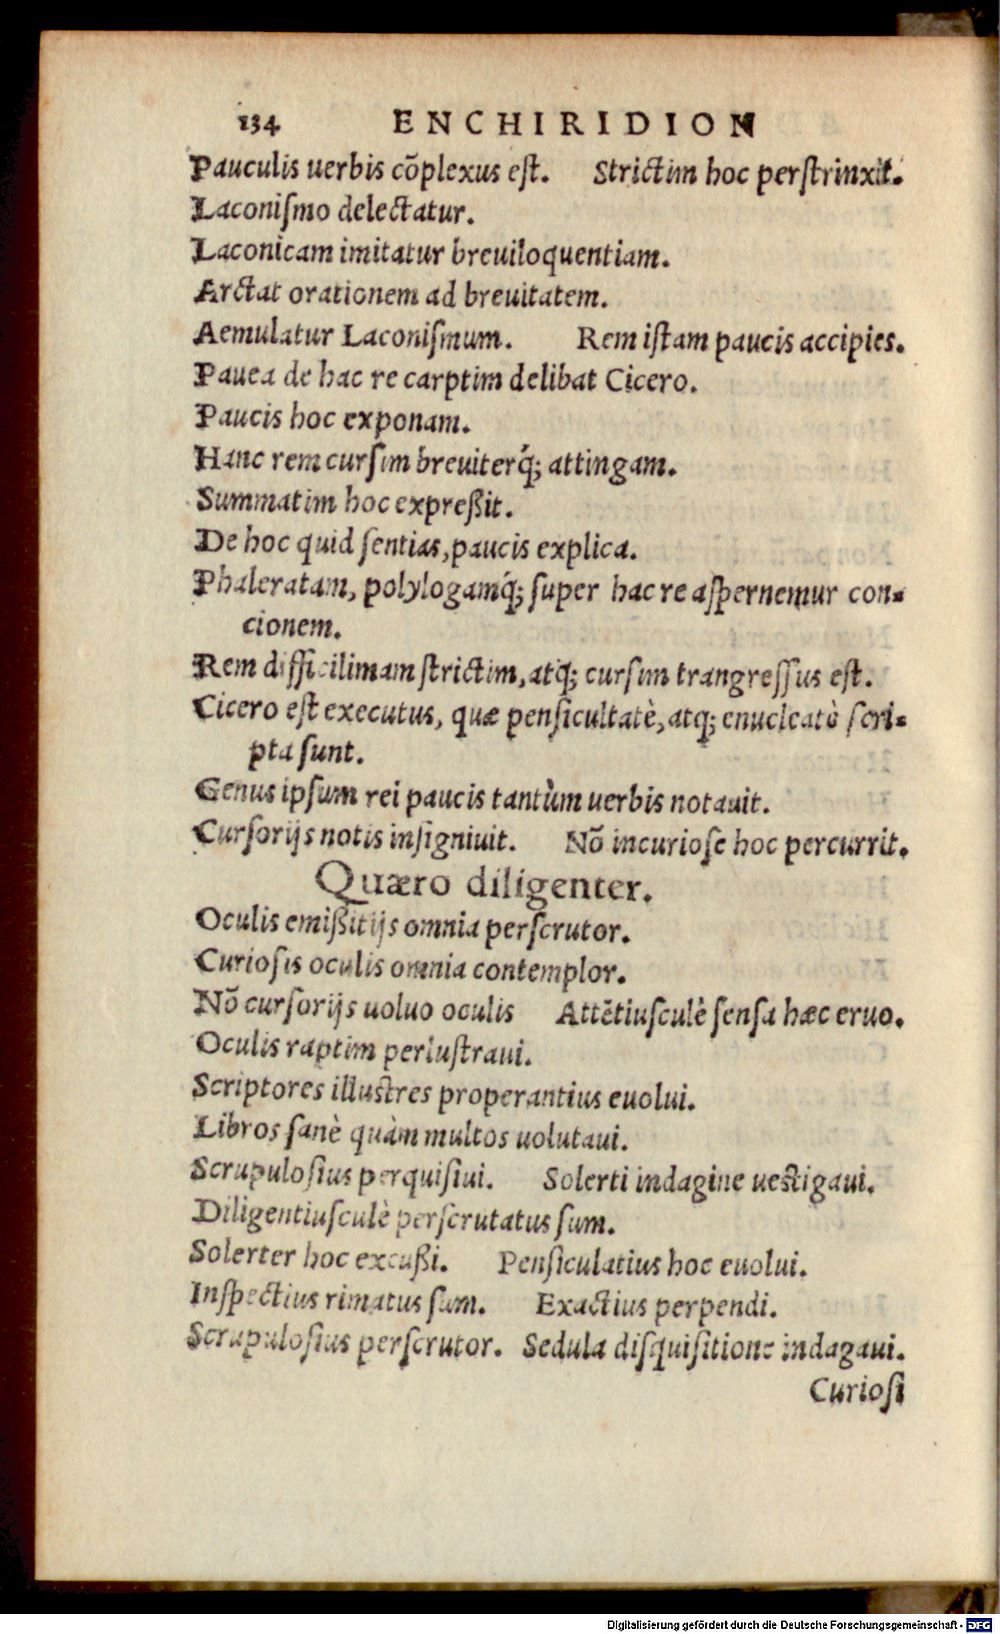 134 ENCHIRIDION
Pauculis uerbis cõplexus eſt. Strictim hoc perſtrinxit.
Laconiſmo delectatur.
Laconicam imitatur breuiloquentiam.
Arctat orationem ad breuitatem.
Aemulatur Laconiſmum. Rem iſtam paucis accipies.
Pauca de hac re carptim delibat Cicero.
Paucis hoc exponam.
Hanc rem curſim breuiterq́; attingam.
Summatim hoc expreßit.
De hoc quid ſentias, paucis explica.
Phaleratam, polylogamq́; ſuper hac re aſpernemur con-
cionem.
Rem difficilimam ſtrictim, atq́; curſim trangreſſus eſt.
Cicero eſt executus, quæ penſicultatè, atq; enucleatè ſcri-
pta ſunt.
Genus ipſum rei paucis tantùm uerbis notauit.
Curſorijs notis inſigniuit. Nõ incurioſe hoc percurrit.
Quæro diligenter.
Oculis emißitijs omnia perſcrutor.
Curioſis oculis omnia contemplor.
Nõ curſorijs uoluo oculis Attẽtiuſculè ſenſa hæc eruo.
Oculis raptim perluſtraui.
Scriptores illuſtres properantius euolui.
Libros ſanè quàm multos uolutaui.
Scrupuloſius perquiſiui. Solerti indagine ueſtigaui.
Diligentiuſculè perſcrutatus ſum.
Solerter hoc excußi. Penſiculatius hoc euolui.
Inſpectius rimatus ſum. Exactius perpendi.
Scrupuloſius perſcrutor. Sedula diſquiſitione indagaui.
Curioſi
Digitalisierung gefördert durch die Deutsche Forschungsgemeinschaft - DFG